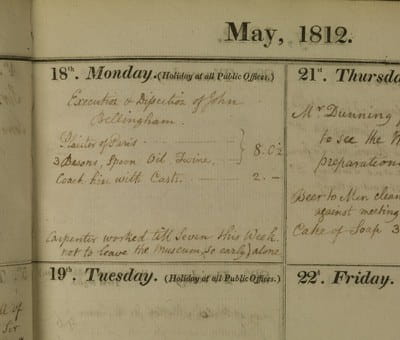 May, 1812.
18th. Monday. (Holiday at all Public Offices.)
Execution & Dissection of John
Bellingham.
Plaister of Paris
3 Basons, Spoon Oil, Twine. } 8.0½
Coach hire with Casts. 2. —
Carpenter worked till Seven this Week.
not to leave the Museum (so early) alone
19th. Tuesday. (Holiday at all Public Offices.)
21st. Thursda
Mr Dunning
to see the
preparation
Beer to Men clean
against meeting
Cake of Soap 3
22d. Friday.